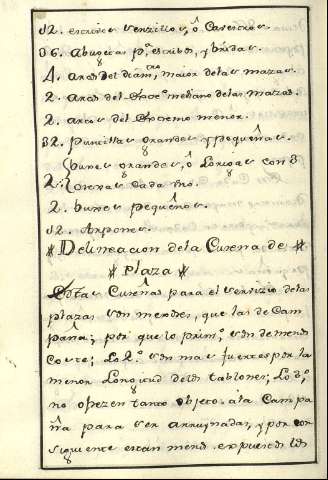 12. escrive senzillos, ô Caveseros
06. Abugeras pª escribos, y bridas.
4. Aros del diâmtro maior delas mazas.
2. Aros del Dioce mediano delas mazas.
2. Aros del Extremo menor.
32. Punillas grandes y pequeñas.
2. bunes grandes, ô Longas con 3
orejas cada uno.
2. bunes pequeños.
12. Arpones.
# Delineacion dela Cureña de #
# Plaza #
Estas Cureñas para el servizio delas
plazas son menores, que las de Cam
paña; por que lo primº, son de menos
coste; Lo 2º son mas fuertes por la
menor Longitud delos tablones; Lo 3º
no ofrezen tanto objeto ala Campa
ña para ser arruynadas, y por con
siguiente estan menos expuestos los